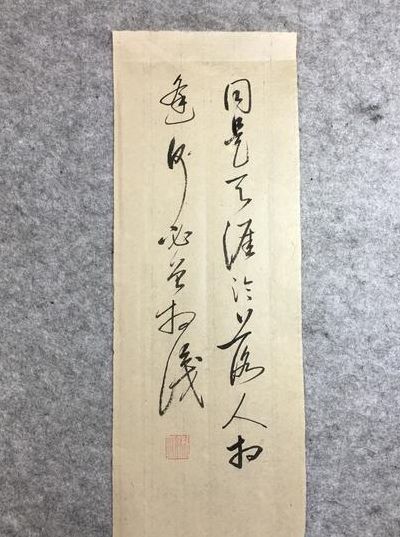 同是天涯淪落人相
逢何必曾相識